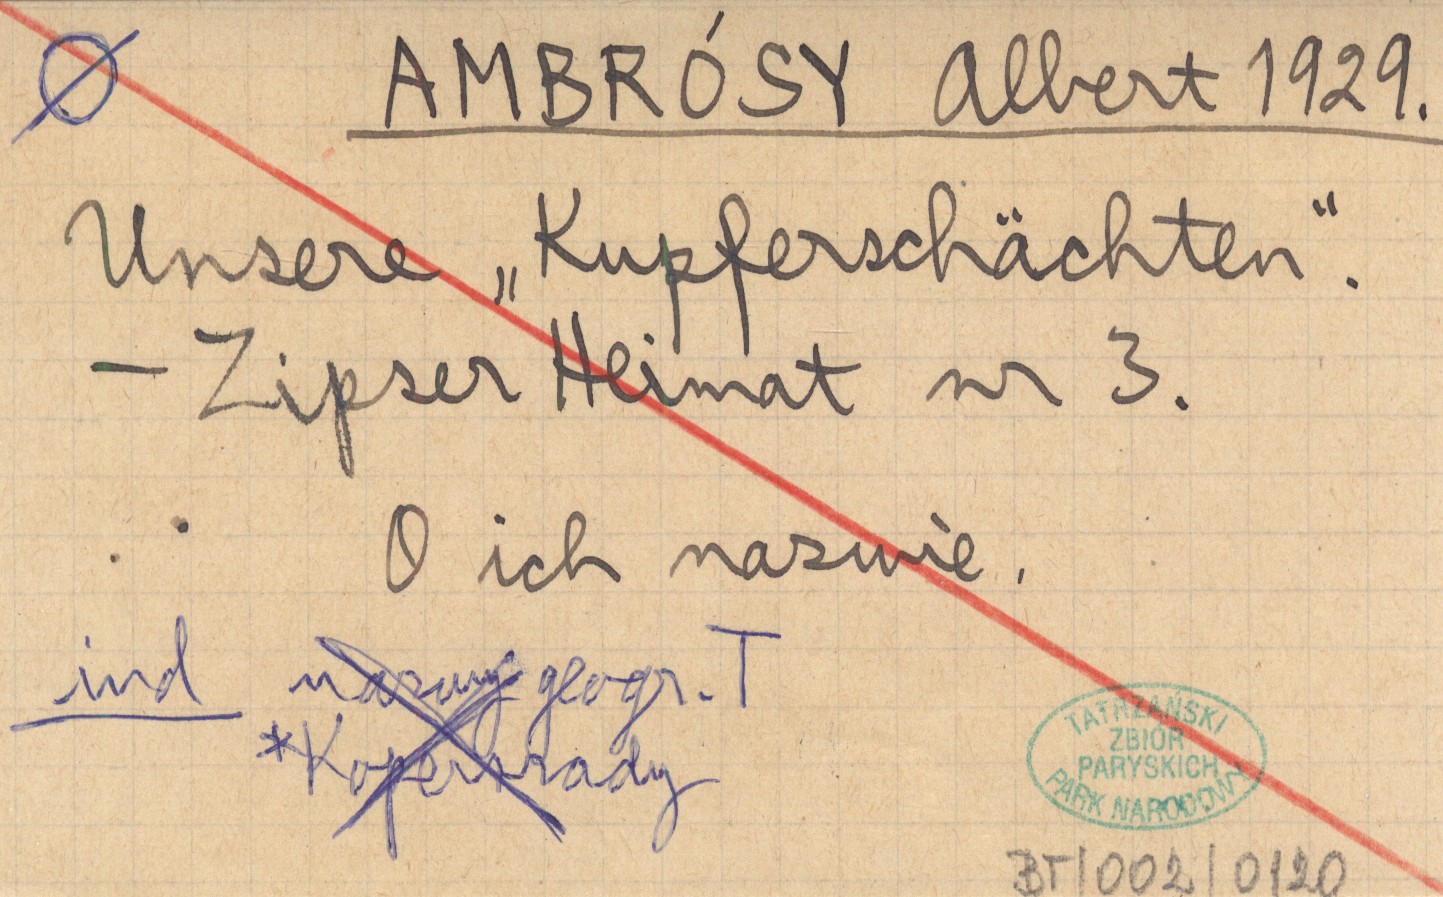 Ø AMBRÓSY Albert 1929.
Unsere „Kupferschächten“.
— Zipser Heimat nr 3.
O ich nazwie.
ind nazwy geogr. T
*Kopersz​ady
TATRZAŃSKI
ZBIÓR
PARYSKICH
PARK NARODOWY
BT/002/0120